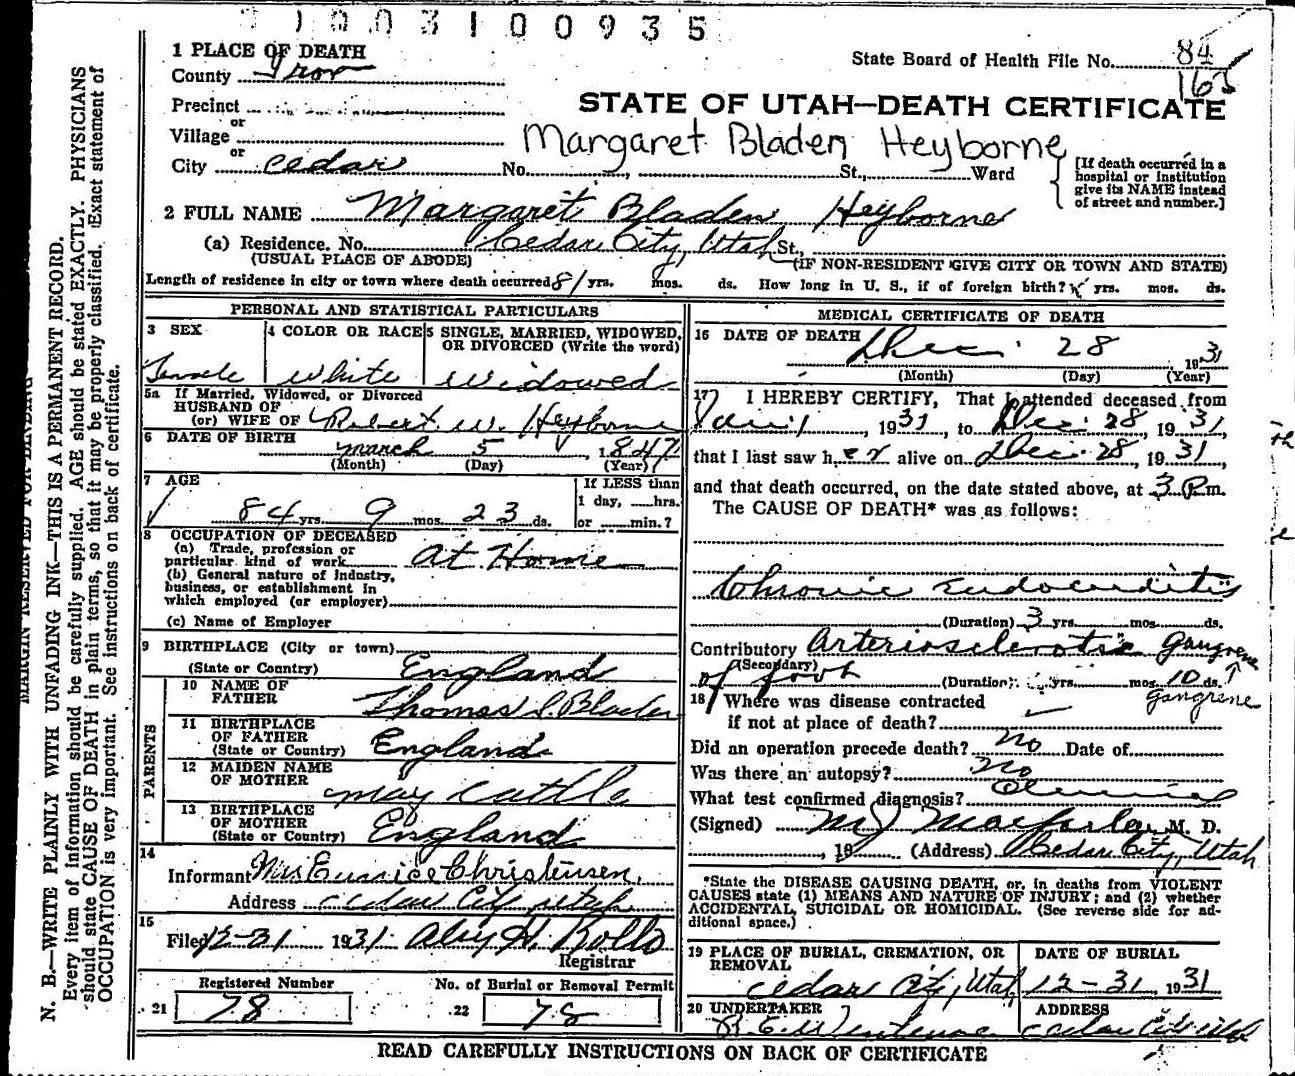 1003100935
1 PLACE OF DEATH
County Iron
State Board of Health File No. 84
163
Precinct
or
Village
or
City Cedar No. St., Ward
STATE OF UTAH—DEATH CERTIFICATE
Margaret Bladen Heyborne
[If death occurred in a
hospital or institution
give its NAME instead
of street and number.]
2 FULL NAME Margaret Bladen Heyborne
(a) Residence. No. Cedar City, Utah St.,
(USUAL PLACE OF ABODE) (IF NON-RESIDENT GIVE CITY OR TOWN AND STATE)
Length of residence in city or town where death occurred 81 yrs. mos. ds. How long in U. S., if of foreign birth? yrs. mos. ds.
PERSONAL AND STATISTICAL PARTICULARS
3 SEX 4 COLOR OR RACE 5 SINGLE, MARRIED, WIDOWED,
OR DIVORCED (Write the word)
Female White Widowed
5a If Married, Widowed, or Divorced
HUSBAND OF
(or) WIFE OF Robert W. Heyborne
6 DATE OF BIRTH March 5, 1847
(Month) (Day) (Year)
7 AGE If LESS than
1 day, hrs.
84 yrs. 9 mos. 23 ds. or min.?
8 OCCUPATION OF DECEASED
(a) Trade, profession or
particular kind of work At Home
(b) General nature of Industry,
business, or establishment in
which employed (or employer)
(c) Name of Employer
9 BIRTHPLACE (City or town)
(State or Country) England
PARENTS
10 NAME OF
FATHER Thomas Bladen
11 BIRTHPLACE
OF FATHER
(State or Country) England
12 MAIDEN NAME
OF MOTHER May Cattle
13 BIRTHPLACE
OF MOTHER
(State or Country) England
14
Informant Mrs Eunice Christensen
Address Cedar City Utah
15
Filed 12-31 1931 H. Rollo
Registrar
Registered Number No. of Burial or Removal Permit
21 78 22 78
MEDICAL CERTIFICATE OF DEATH
16 DATE OF DEATH Dec. 28 1931
(Month) (Day) (Year)
17 I HEREBY CERTIFY, That I attended deceased from
, 1931, to Dec. 28 1931,
that I last saw her alive on Dec. 28, 1931,
and that death occurred, on the date stated above, at 3 P.m.
The CAUSE OF DEATH* was as follows:
Chronic Endocarditis
(Duration) 3 yrs. mos. ds.
Contributory Arteriosclerotic Gangrene
(Secondary)
of foot (Duration) yrs. mos. 10 ds. ↑
Gangrene
18 Where was disease contracted
if not at place of death?
Did an operation precede death? No Date of
Was there an autopsy? No
What test confirmed diagnosis?
(Signed) M J Macfarlane, M. D.
, 19 (Address) Cedar City, Utah
*State the DISEASE CAUSING DEATH, or, in deaths from VIOLENT
CAUSES state (1) MEANS AND NATURE OF INJURY; and (2) whether
ACCIDENTAL, SUICIDAL OR HOMICIDAL. (See reverse side for ad-
ditional space.)
19 PLACE OF BURIAL, CREMATION, OR
REMOVAL DATE OF BURIAL
Cedar City, Utah 12-31, 1931
20 UNDERTAKER ADDRESS
Cedar City Utah
READ CAREFULLY INSTRUCTIONS ON BACK OF CERTIFICATE
MARGIN RESERVED FOR BINDING
N. B.—WRITE PLAINLY WITH UNFADING INK—THIS IS A PERMANENT RECORD.
Every item of information should be carefully supplied. AGE should be stated EXACTLY. PHYSICIANS
should state CAUSE OF DEATH in plain terms, so that it may be properly classified. Exact statement of
OCCUPATION is very important. See instructions on back of certificate.